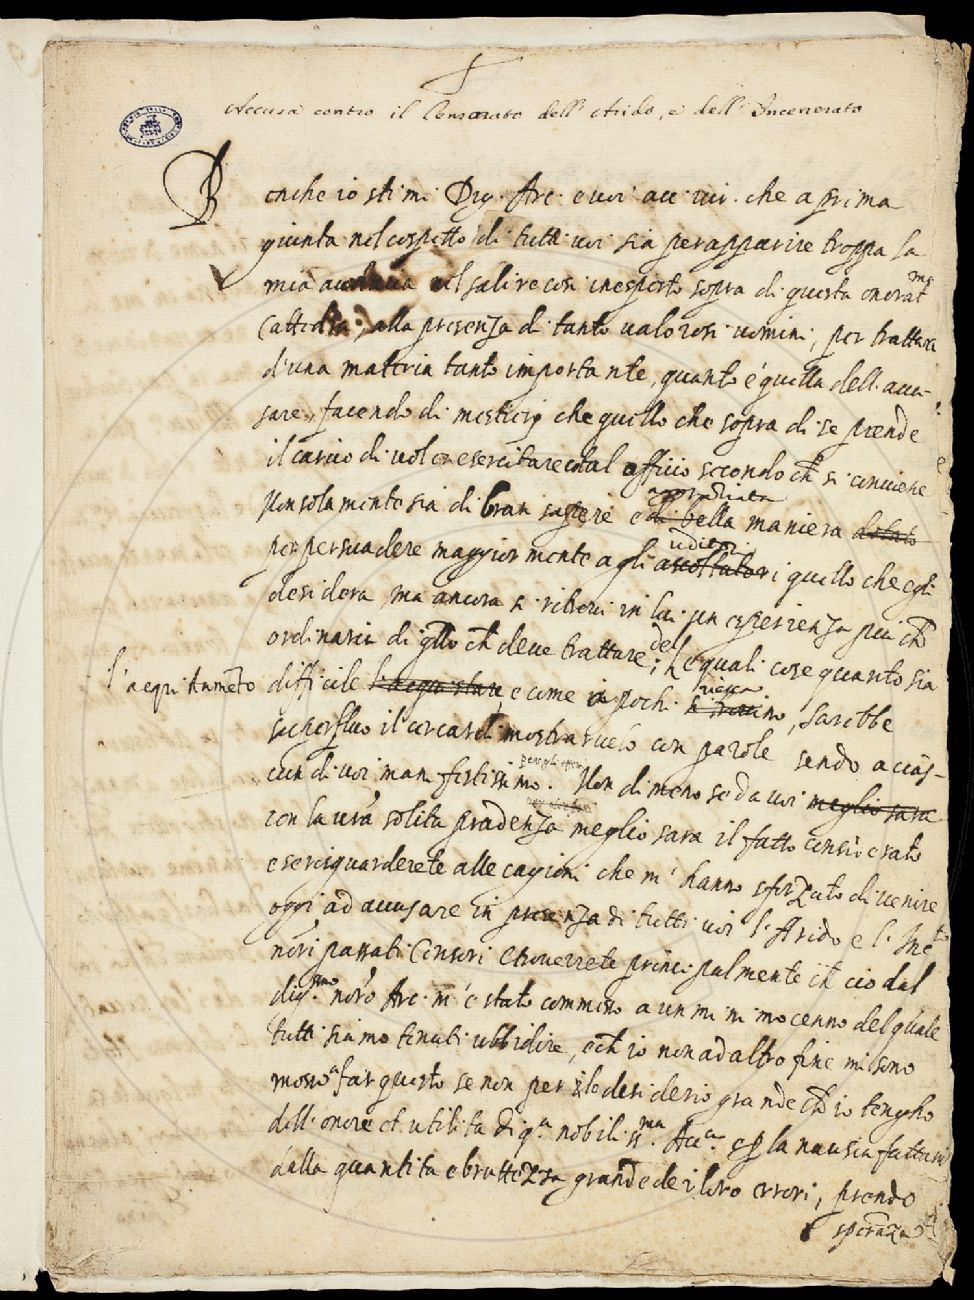 Accusa contro il Censorato dell'Arido, e dell'Incenerato
Benche io stimi Dig. Arc. e voi acc. vir. che a prima
giunta nel cospetto di tutti voi sia per apparire troppa la
mia audacia nel salire cosi inesperto sopra di questa onorat.ma
Cattedra, alla presenza di tanto valorosi uomini, per trattare
d'una materia tanto importante, quanto e' quella dell accu-
sare, facendo di mestieri che quello che sopra di se prende
il carico di voler esercitare cotal officio secondo ch si conviene
Non solamente sia di bran sapere e di bella maniera dotato
apropriata
per persuadere maggiormente agli ascoltatori quello che egli
uditori
desidera, ma ancora si ritrovi in lui un esperienza piu ch
ordinaria di qllo ch deve trattare; del Le quali cose quanto sia
l'acquistameto difficile l'acquistare, e come in pochi si trovino, sarebbe
riesca
superfluo il cercar di mostrarvelo con parole sendo a cias-
cun di voi manifestissimo. Non di meno se da voi meglio sara
con la vrã solita prudenza meglio sara il fatto considerato
e se risguarderete alle cagioni che m' hanno sforzato di venire
oggi ad accusare in presenza di tutti voi l'Arido e l'Inc.to
nõri passati Censori e troverrete principalmente ch cio dal
dig.mo nõro Arc. m'e stato commisso a un minimo cenno del quale
tutti siamo tenuti ubbidire, e ch io non ad altro fine mi sono
mosso a far questo se non per il desiderio grande ch io tengho
dell onore et utilita di q.a nobiliss.ma Acc.a e p la nausea fattami
dalla quantita e bruttezza grande de i loro errori, prendo
speranza